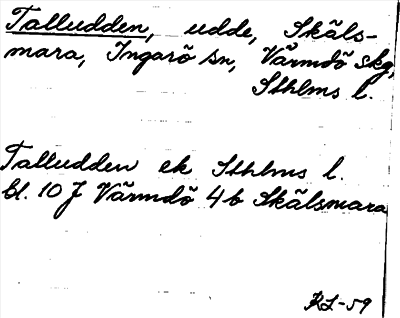 Talludden, udde, Skäls-
mara, Ingarö sn, Värmdö skg,
Sthlms l.
Talludden ek Sthlms l.
bl. 10 J Värmdö 4b Skälsmara
RL-59